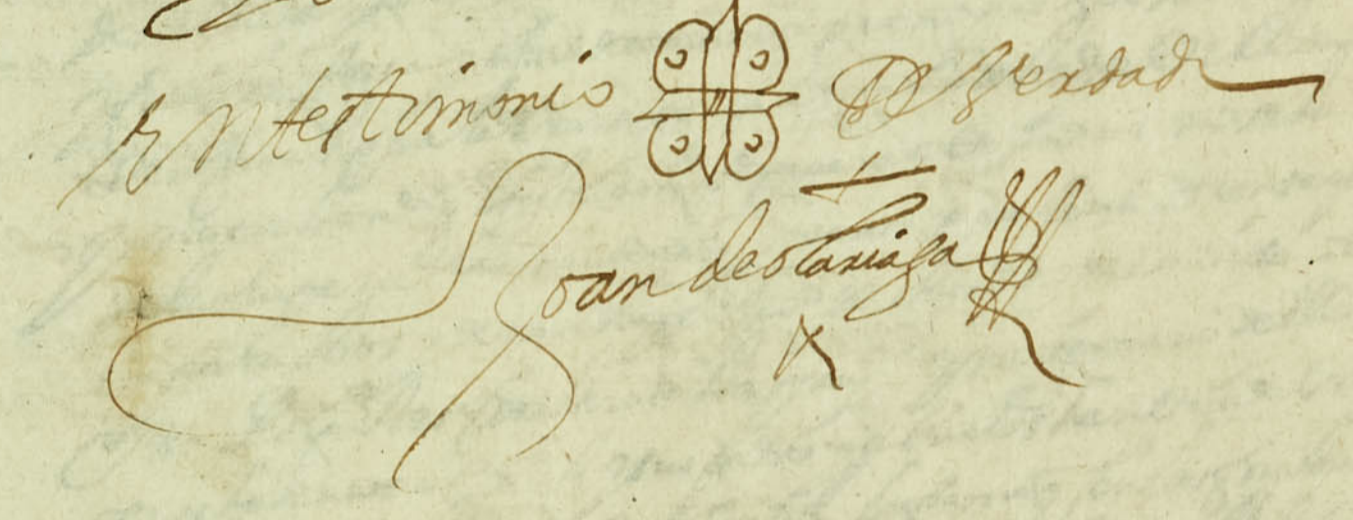 En testimonio De Verdad
Joan de olariaga